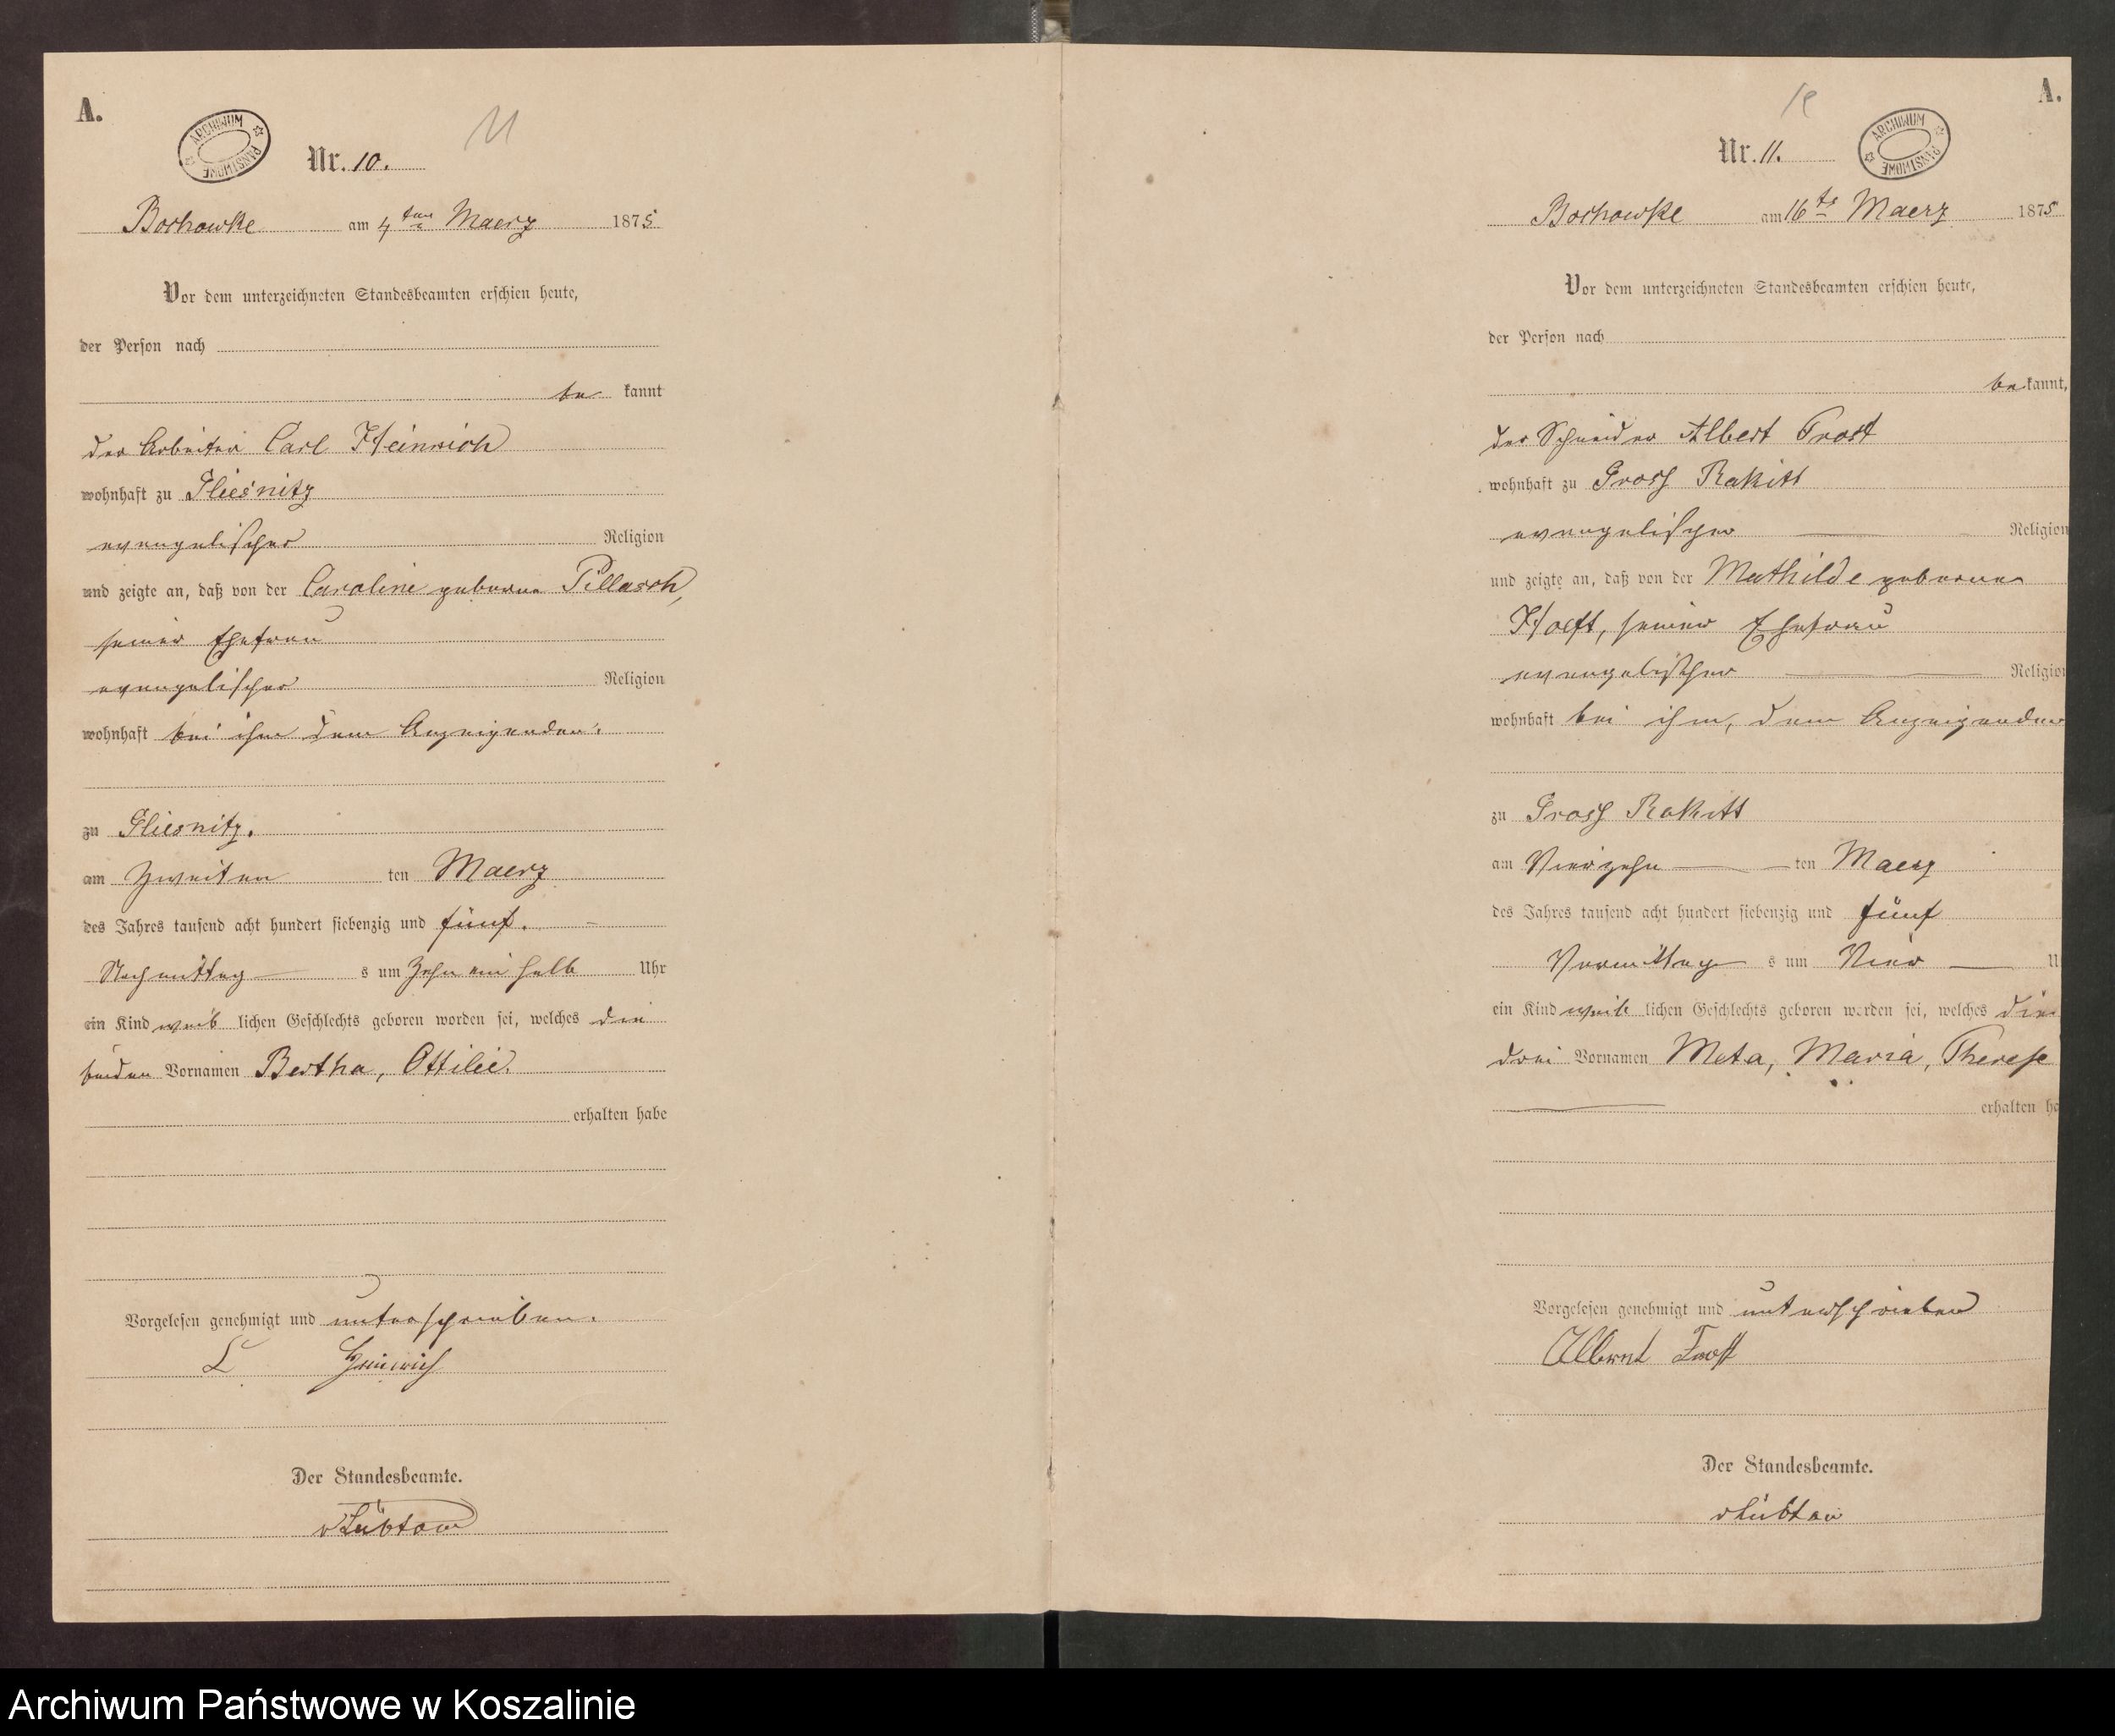 A.
ARCHIWUM PAŃSTWOWE
11
Nr. 10.
Bochowke am 4ten Maerz 1875.
Vor dem unterzeichneten Standesbeamten erschien heute,
der Person nach
be kannt
der Arbeiter Carl Heinrich
wohnhaft zu Gliesnitz
evangelischer Religion
und zeigte an, daß von der Caroline geborne Pillasch,
seiner Ehefrau
evangelischer Religion
wohnhaft bei ihm dem Anzeigenden.
zu Gliesnitz.
am Zweiten ten Maerz
des Jahres tausend acht hundert siebenzig und fünf.
Nachmittag s um Zehn ein halb Uhr
ein Kind weib lichen Geschlechts geboren worden sei, welches die
beiden Vornamen Bertha, Ottilie.
erhalten habe
Vorgelesen genehmigt und unterschrieben.
Heinrich
Der Standesbeamte.
vLübtow
A.
ARCHIWUM PAŃSTWOWE
Nr. 11.
Bochowke am 16te Maerz 1875
Vor dem unterzeichneten Standesbeamten erschien heute,
der Person nach
be kannt,
der Schneider Albert Trost
wohnhaft zu Gross Rakitt
evangelischer Religion
und zeigte an, daß von der Mathilde geborne
Hoeft, seiner Ehefrau
evangelischer Religion
wohnhaft bei ihm, dem Anzeigenden
zu Gross Rakitt
am Vierzehn ten Maerz
des Jahres tausend acht hundert siebenzig und fünf
Vormittag s um Vier U
ein Kind weib lichen Geschlechts geboren worden sei, welches die
drei Vornamen Meta, Maria, Therese
erhalten ha
Vorgelesen genehmigt und unterschrieben
Albert Trost
Der Standesbeamte.
vLübtow
Archiwum Państwowe w Koszalinie